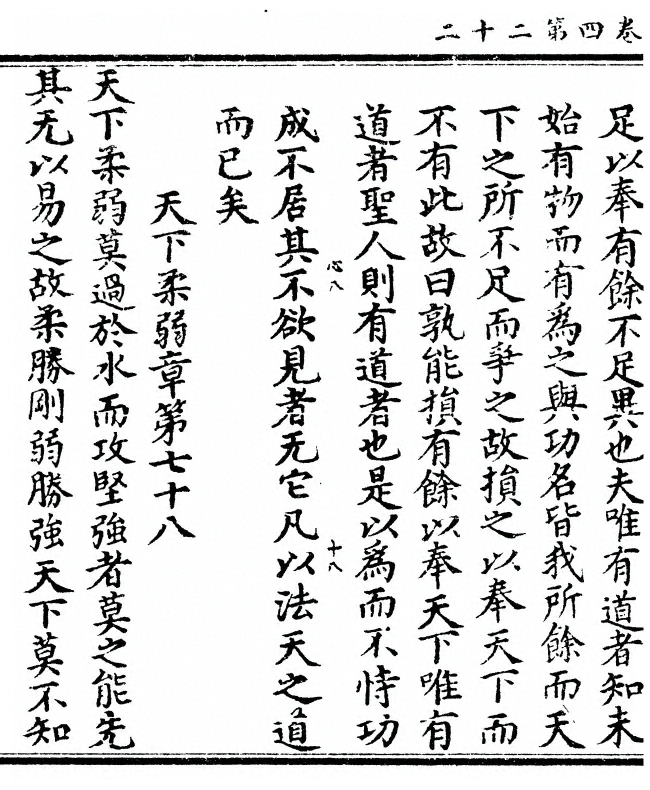 卷四第二十二
足以奉有餘不足異也夫唯有道者知未
始有物而有爲之與功名皆我所餘而天
下之所不足而爭之故損之以奉天下而
不有此故曰孰能損有餘以奉天下唯有
道者聖人則有道者也是以爲而不恃功
成不居其不欲見者无它凡以法天之道
心八
十八
而已矣
天下柔弱章第七十八
天下柔弱莫過於水而攻堅強者莫之能先
其无以易之故柔勝剛弱勝強天下莫不知